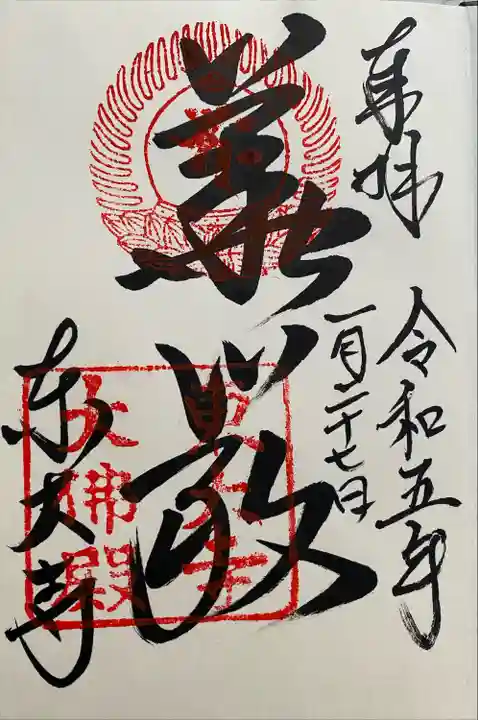 奉拝
令和五年
一月二十七日
華嚴
東大寺
東大寺
大佛殿